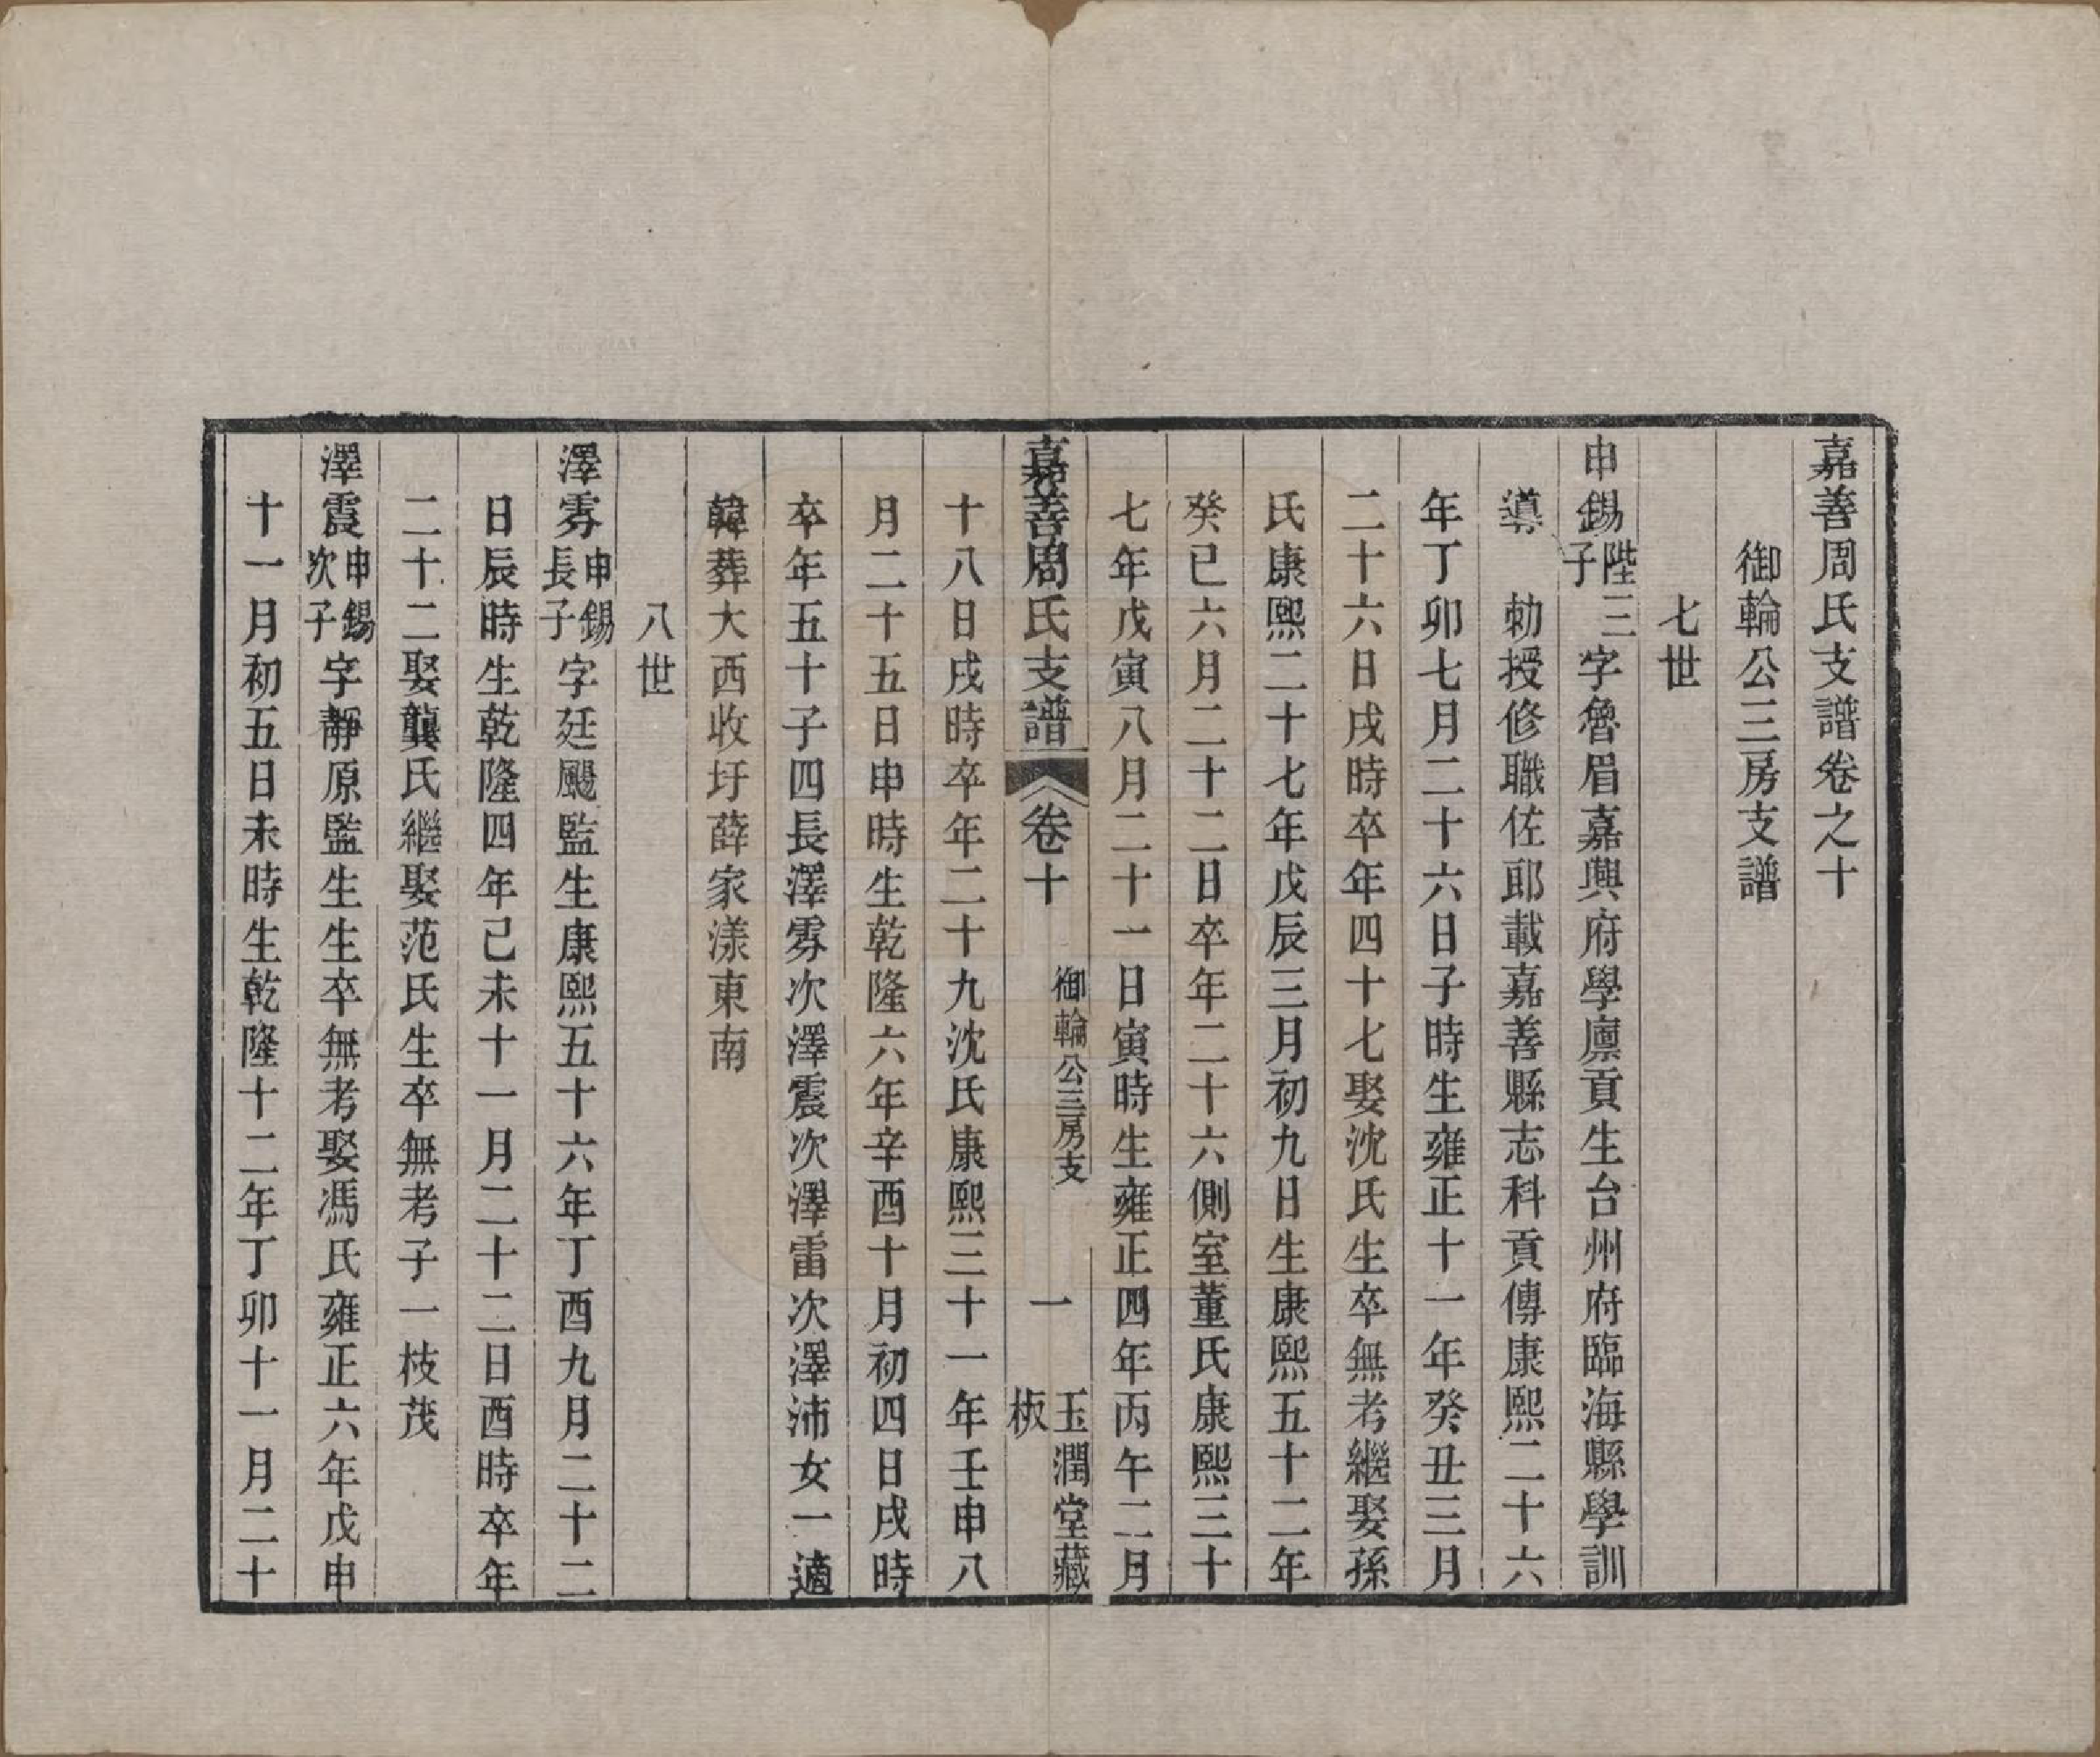 嘉善周氏支譜卷之十
御輪公三房支譜
七世
申錫陛三子字魯眉嘉興府學廩貢生台州府臨海縣學訓
導 勅授修職佐郎載嘉善縣志科貢傳康熙二十六
年丁卯七月二十六日子時生雍正十一年癸丑三月
二十六日戌時卒年四十七娶沈氏生卒無考繼娶孫
氏康熙二十七年戊辰三月初九日生康熙五十二年
癸巳六月二十二日卒年二十六側室董氏康熙三十
七年戊寅八月二十一日寅時生雍正四年丙午二月
嘉善周氏支譜 卷十 御輪公三房支 一 玉潤堂藏板
十八日戌時卒年二十九沈氏康熙三十一年壬申八
月二十五日申時生乾隆六年辛酉十月初四日戌時
卒年五十子四長澤雱次澤震次澤雷次澤沛女一適
韓葬大西收圩薛家漾東南
八世
澤雱申錫長子字廷颺監生康熙五十六年丁酉九月二十二
日辰時生乾隆四年己未十一月二十二日酉時卒年
二十二娶龔氏繼娶范氏生卒無考子一枝茂
澤震申錫次子字靜原監生生卒無考娶馮氏雍正六年戊申
十一月初五日未時生乾隆十二年丁卯十一月二十